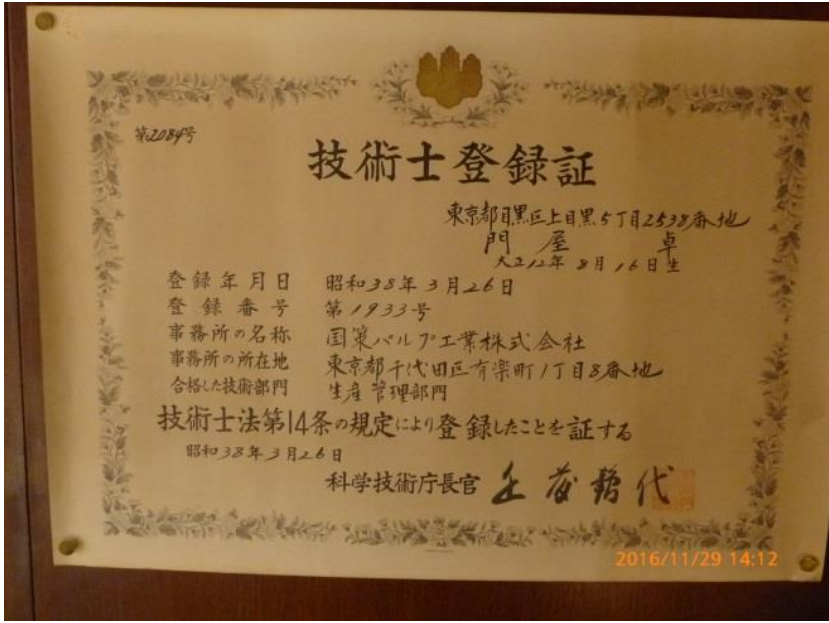 第2084号
技術士登録証
東京都目黒区上目黒5丁目2538番地
門屋 卓
大正12年8月16日生
登録年月日 昭和38年3月26日
登録番号 第1933号
事務所の名称 国策パルプ工業株式会社
事務所の所在地 東京都千代田区有楽町1丁目8番地
合格した技術部門 生産管理部門
技術士法第14条の規定により登録したことを証する
昭和38年3月26日
科学技術庁長官
2016/11/29 14:12